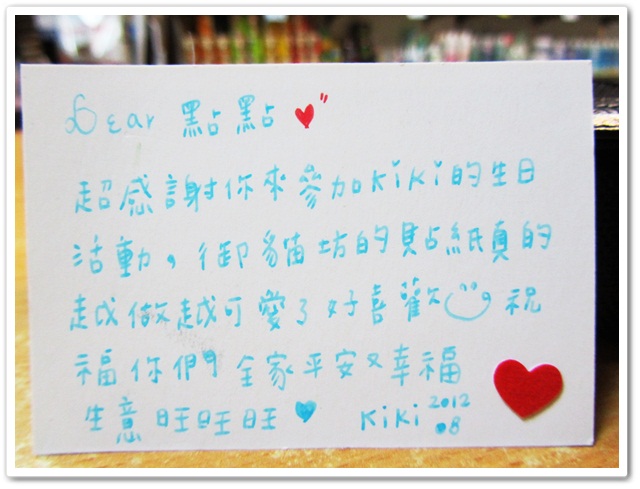 Dear 點點
超感謝你來參加KiKi的生日
活動,御貓坊的貼紙真的
越做越可愛了好喜歡 祝
福你們全家平安又幸福
生意旺旺旺 KiKi 2012
.8